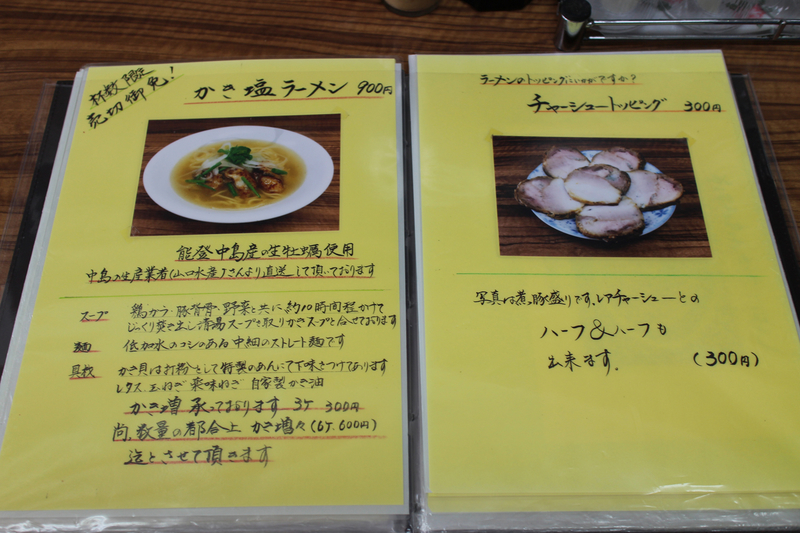 杯数限定
売切御免!
かき塩ラーメン 900円
能登中島産の生牡蠣使用
中島の生産業者(山口水産)さんより直送して頂いております
スープ 鶏ガラ・豚背骨・野菜と共に約10時間程かけて
じっくり炊き出し清湯スープを取りかきスープと合せております
麺 低加水のコシのある中細のストレート麺です
具教 かき貝は打粉をして特製のあんにて下味をつけてあります
レタス、玉ねぎ 薬味ねぎ 自家製かき油
かき増 承っております 3ケ 300円
尚、数量の都合上 かき増々(6ケ.600円)
迄とさせて頂きます
ラーメンのトッピングにいかがですか?
チャーシュートッピング 300円
写真は煮豚盛りです。レアチャーシューとの
ハーフ&ハーフも
出来ます。 (300円)